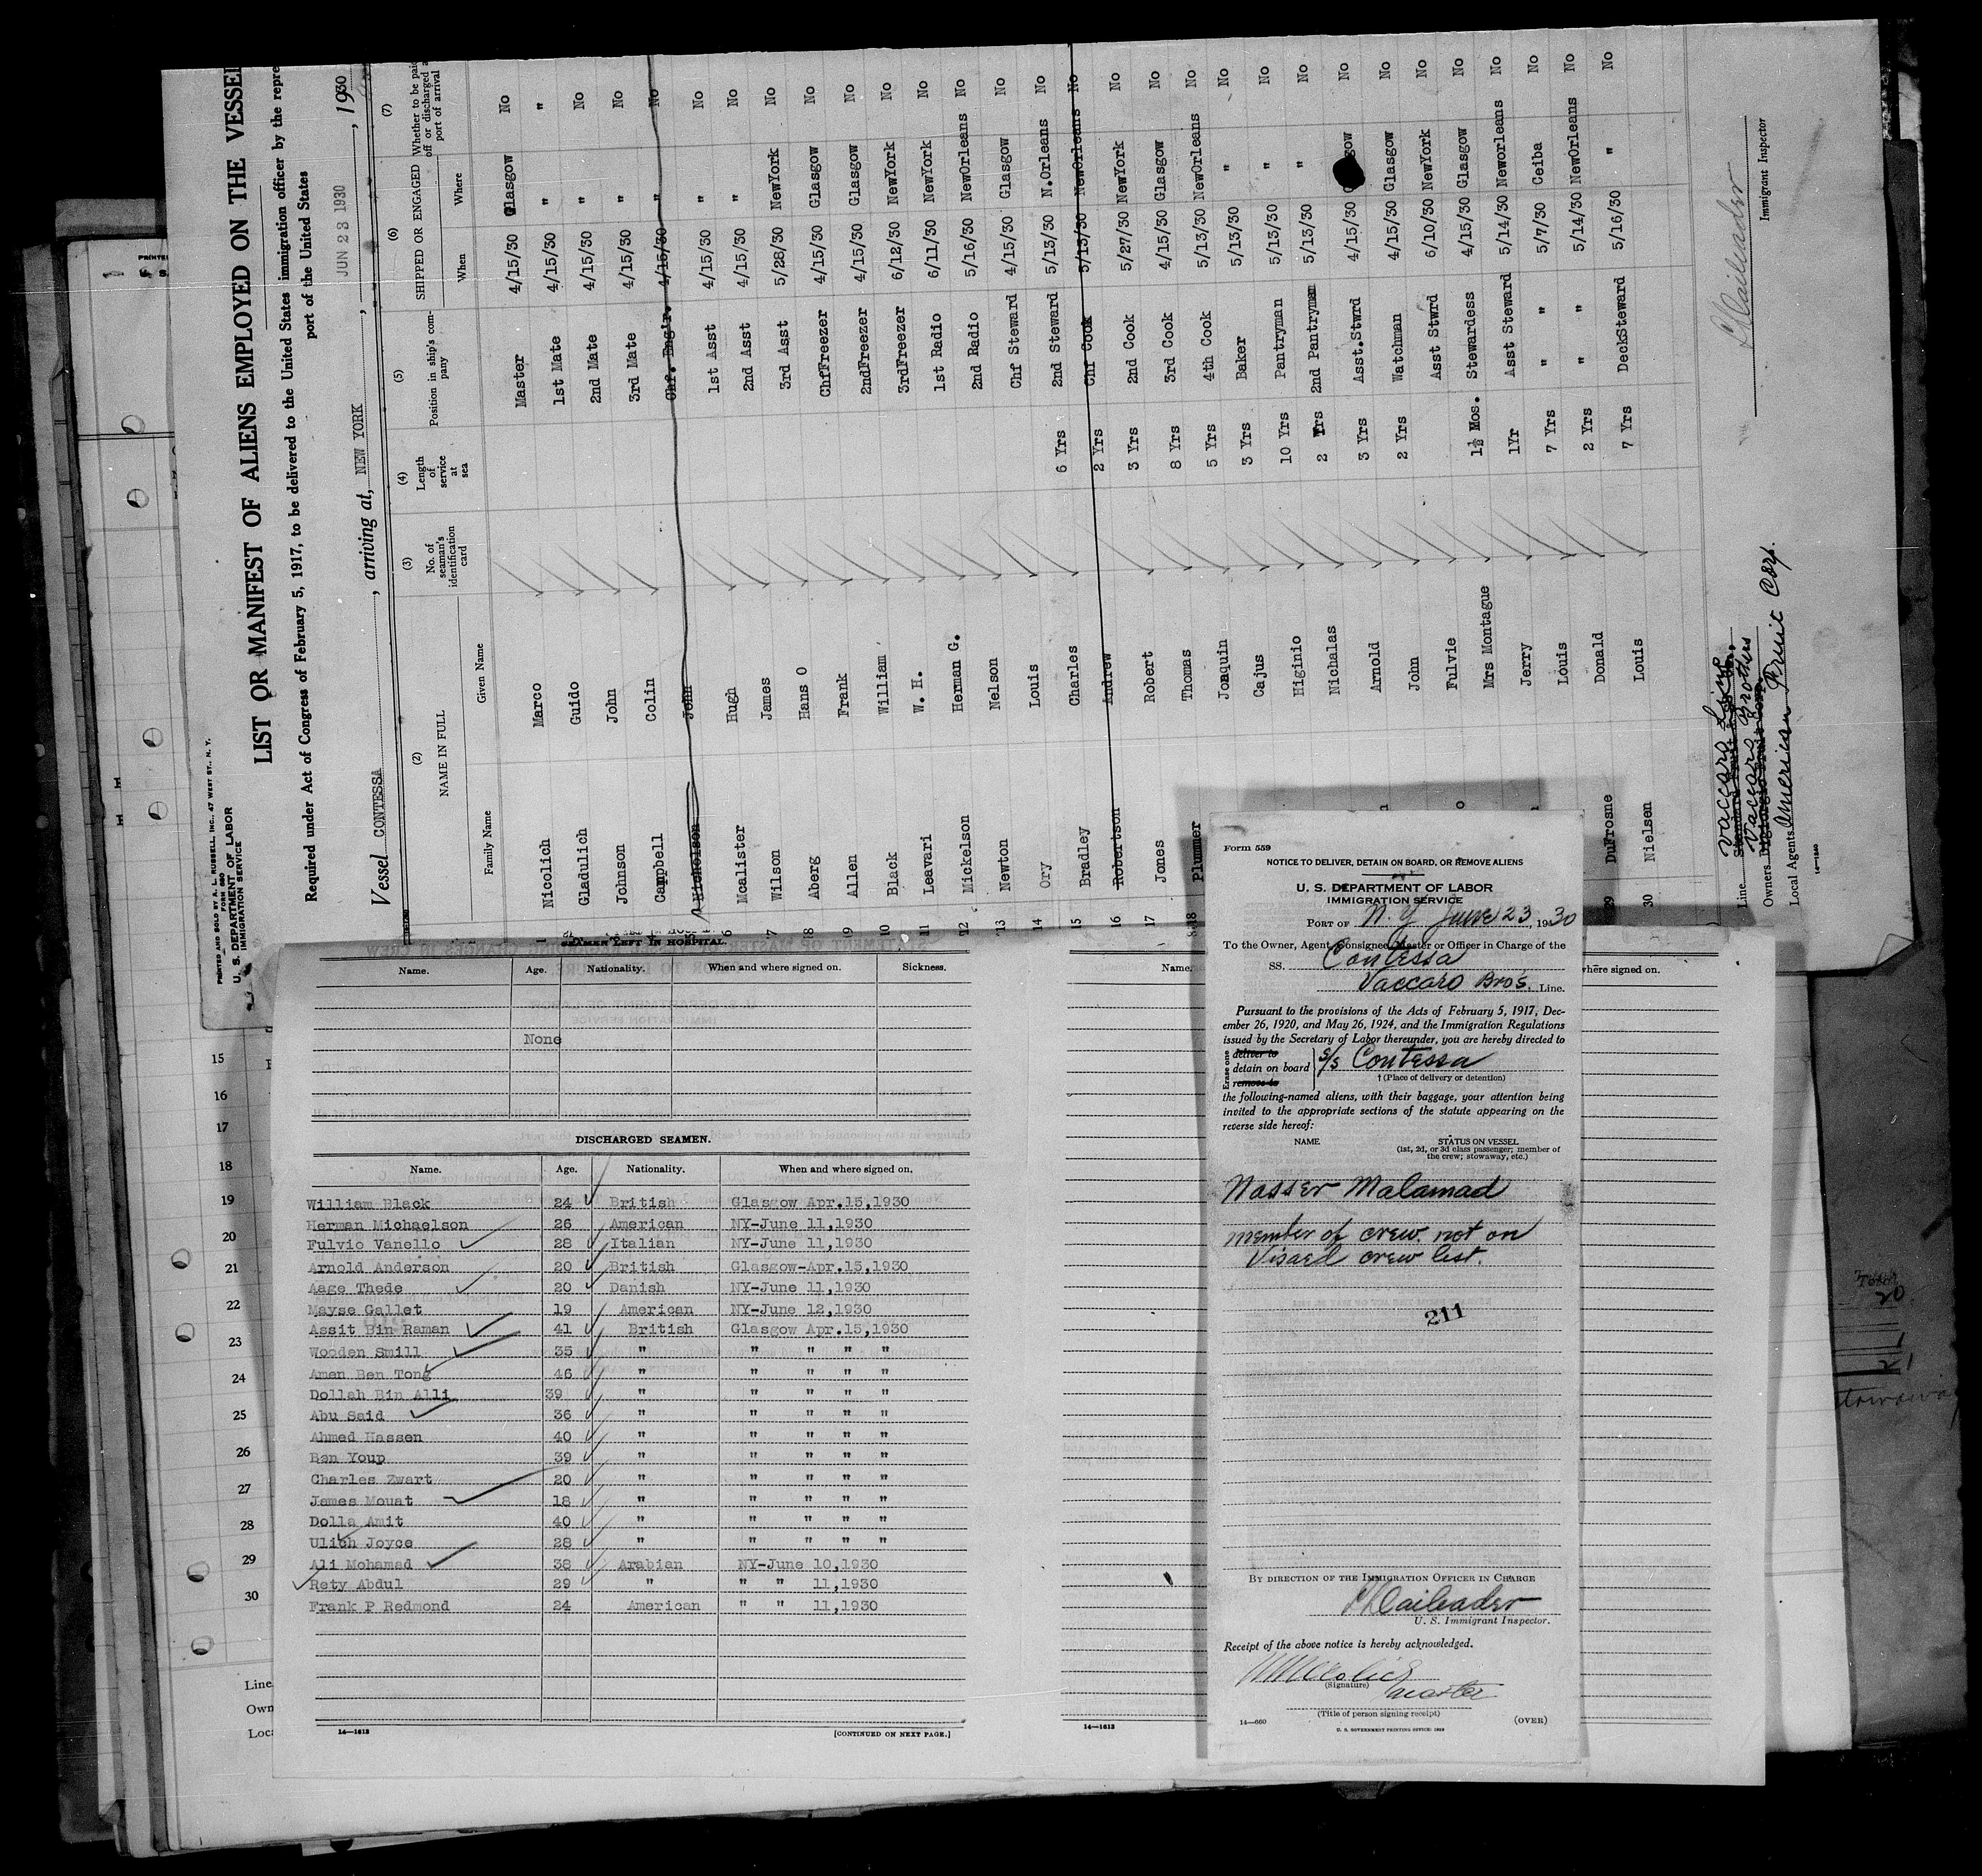 PRINTED AND SOLD BY A. L. RUSSELL, INC., 47 WEST ST., N. Y.
FORM 680
U. S. DEPARTMENT OF LABOR
IMMIGRATION SERVICE
LIST OR MANIFEST OF ALIENS EMPLOYED ON THE VESSEL
Required under Act of Congress of February 5, 1917, to be delivered to the United States immigration officer by the repre
port of the United States
Vessel CONTESSA, arriving at, NEW YORK, JUN 23 1930, 1930
(2) (3) (4) (5) (6) (7)
NAME IN FULL No. of seaman's identification card Length of service at sea Position in ship's company SHIPPED OR ENGAGED Whether to be paid off or discharged a port of arrival
Family Name Given Name When Where
1 Nicolich Marco Master 4/15/30 Glasgow No
Gladulich Guido 1st Mate 4/15/30 " "
Johnson John 2nd Mate 4/15/30 " No
Campbell Colin 3rd Mate 4/15/30 " No
Nicholson John Chf. Eng'r. 4/15/30 " No
6 Mcalister Hugh 1st Asst 4/15/30 " No
7 Wilson James 2nd Asst 4/15/30 " No
8 Aberg Hans O 3rd Asst 5/28/30 NewYork No
9 Allen Frank ChfFreezer 4/15/30 Glasgow No
10 Black William 2ndFreezer 4/15/30 Glasgow No
11 Leavari W. H. 3rdFreezer 6/12/30 NewYork No
12 Mickelson Herman G. 1st Radio 6/11/30 NewYork No
13 Newton Nelson 2nd Radio 5/16/30 NewOrleans No
14 Ory Louis Chf Steward 4/15/30 Glasgow No
15 Bradley Charles 6 Yrs 2nd Steward 5/13/30 N.Orleans No
16 Robertson Andrew 2 Yrs Chf Cook 5/13/30 NewOrleans No
17 Jones Robert 3 Yrs 2nd Cook 5/27/30 NewYork No
18 Plummer Thomas 8 Yrs 3rd Cook 4/15/30 Glasgow No
Joaquin 5 Yrs 4th Cook 5/13/30 NewOrleans No
Cajus 3 Yrs Baker 5/13/30 " No
Higinio 10 Yrs Pantryman 5/13/30 " No
Nichalas 2 Yrs 2nd Pantryman 5/13/30 " No
Arnold 3 Yrs Asst.Stwrd 4/15/30 No
John 2 Yrs Watchman 4/15/30 Glasgow No
Fulvie Asst Stwrd 6/10/30 NewYork No
Mrs Montague 1½ Mos. Stewardess 4/15/30 Glasgow No
Jerry 1Yr Asst Steward 5/14/30 Neworleans No
Louis 7 Yrs " " 5/7/30 Ceiba No
29 DuFrosne Donald 2 Yrs " " 5/14/30 NewOrleans No
30 Nielsen Louis 7 Yrs DeckSteward 5/16/30 " No
Line Vaccaro Line
Owners Vaccaro Brothers
Local Agents American Fruit Corp.
14—1240
Immigrant Inspector
SEAMEN LEFT IN HOSPITAL.
Name. Age. Nationality. When and where signed on. Sickness.
None
DISCHARGED SEAMEN.
Name. Age. Nationality. When and where signed on.
William Black 24 British Glasgow Apr.15,1930
Herman Michaelson 26 American NY-June 11,1930
Fulvio Vanello 28 Italian NY-June 11,1930
Arnold Anderson 20 British Glasgow-Apr.15,1930
Aage Thede 20 Danish NY-June 11,1930
Mayse Gallet 19 American NY-June 12,1930
Assit Bin Raman 41 British Glasgow Apr.15,1930
Wooden Smill 35 " " " " "
Amen Ben Tong 46 " " " " "
Dollah Bin Alli 39 " " " " "
Abu Said 36 " " " " "
Ahmed Hassen 40 " " " " "
Ben Youp 39 " " " " "
Charles Zwart 20 " " " " "
James Mouat 18 " " " " "
Dolla Amit 40 " " " " "
Ulich Joyce 28 " " " " "
Ali Mohamad 38 Arabian NY-June 10,1930
Rety Abdul 29 " " " 11,1930
Frank P Redmond 24 American " " 11,1930
14—1613 [CONTINUED ON NEXT PAGE.]
15
16
17
18
19
20
21
22
23
24
25
26
27
28
29
30
Line
Own
Loc
Name. where signed on.
14—1613
Form 559
NOTICE TO DELIVER, DETAIN ON BOARD, OR REMOVE ALIENS
U. S. DEPARTMENT OF LABOR
IMMIGRATION SERVICE
PORT OF N.Y June 23, 1930
To the Owner, Agent, Consignee, Master or Officer in Charge of the
SS. Contessa
Vaccaro Bro's. Line.
Pursuant to the provisions of the Acts of February 5, 1917, Dec-
ember 26, 1920, and May 26, 1924, and the Immigration Regulations
issued by the Secretary of Labor thereunder, you are hereby directed to
Erase one
deliver to
detain on board
remove to
S/s Contessa
† (Place of delivery or detention)
the following-named aliens, with their baggage, your attention being
invited to the appropriate sections of the statute appearing on the
reverse side hereof:
NAME STATUS ON VESSEL
(1st, 2d, or 3d class passenger; member of
the crew; stowaway, etc.)
Nasser Malamad
member of crew. not on
Visaed crew list.
211
BY DIRECTION OF THE IMMIGRATION OFFICER IN CHARGE
U. S. Immigrant Inspector.
Receipt of the above notice is hereby acknowledged.
(Signature)
master
(Title of person signing receipt)
14—660 (OVER)
U. S. GOVERNMENT PRINTING OFFICE: 1929
Total
20
1
21